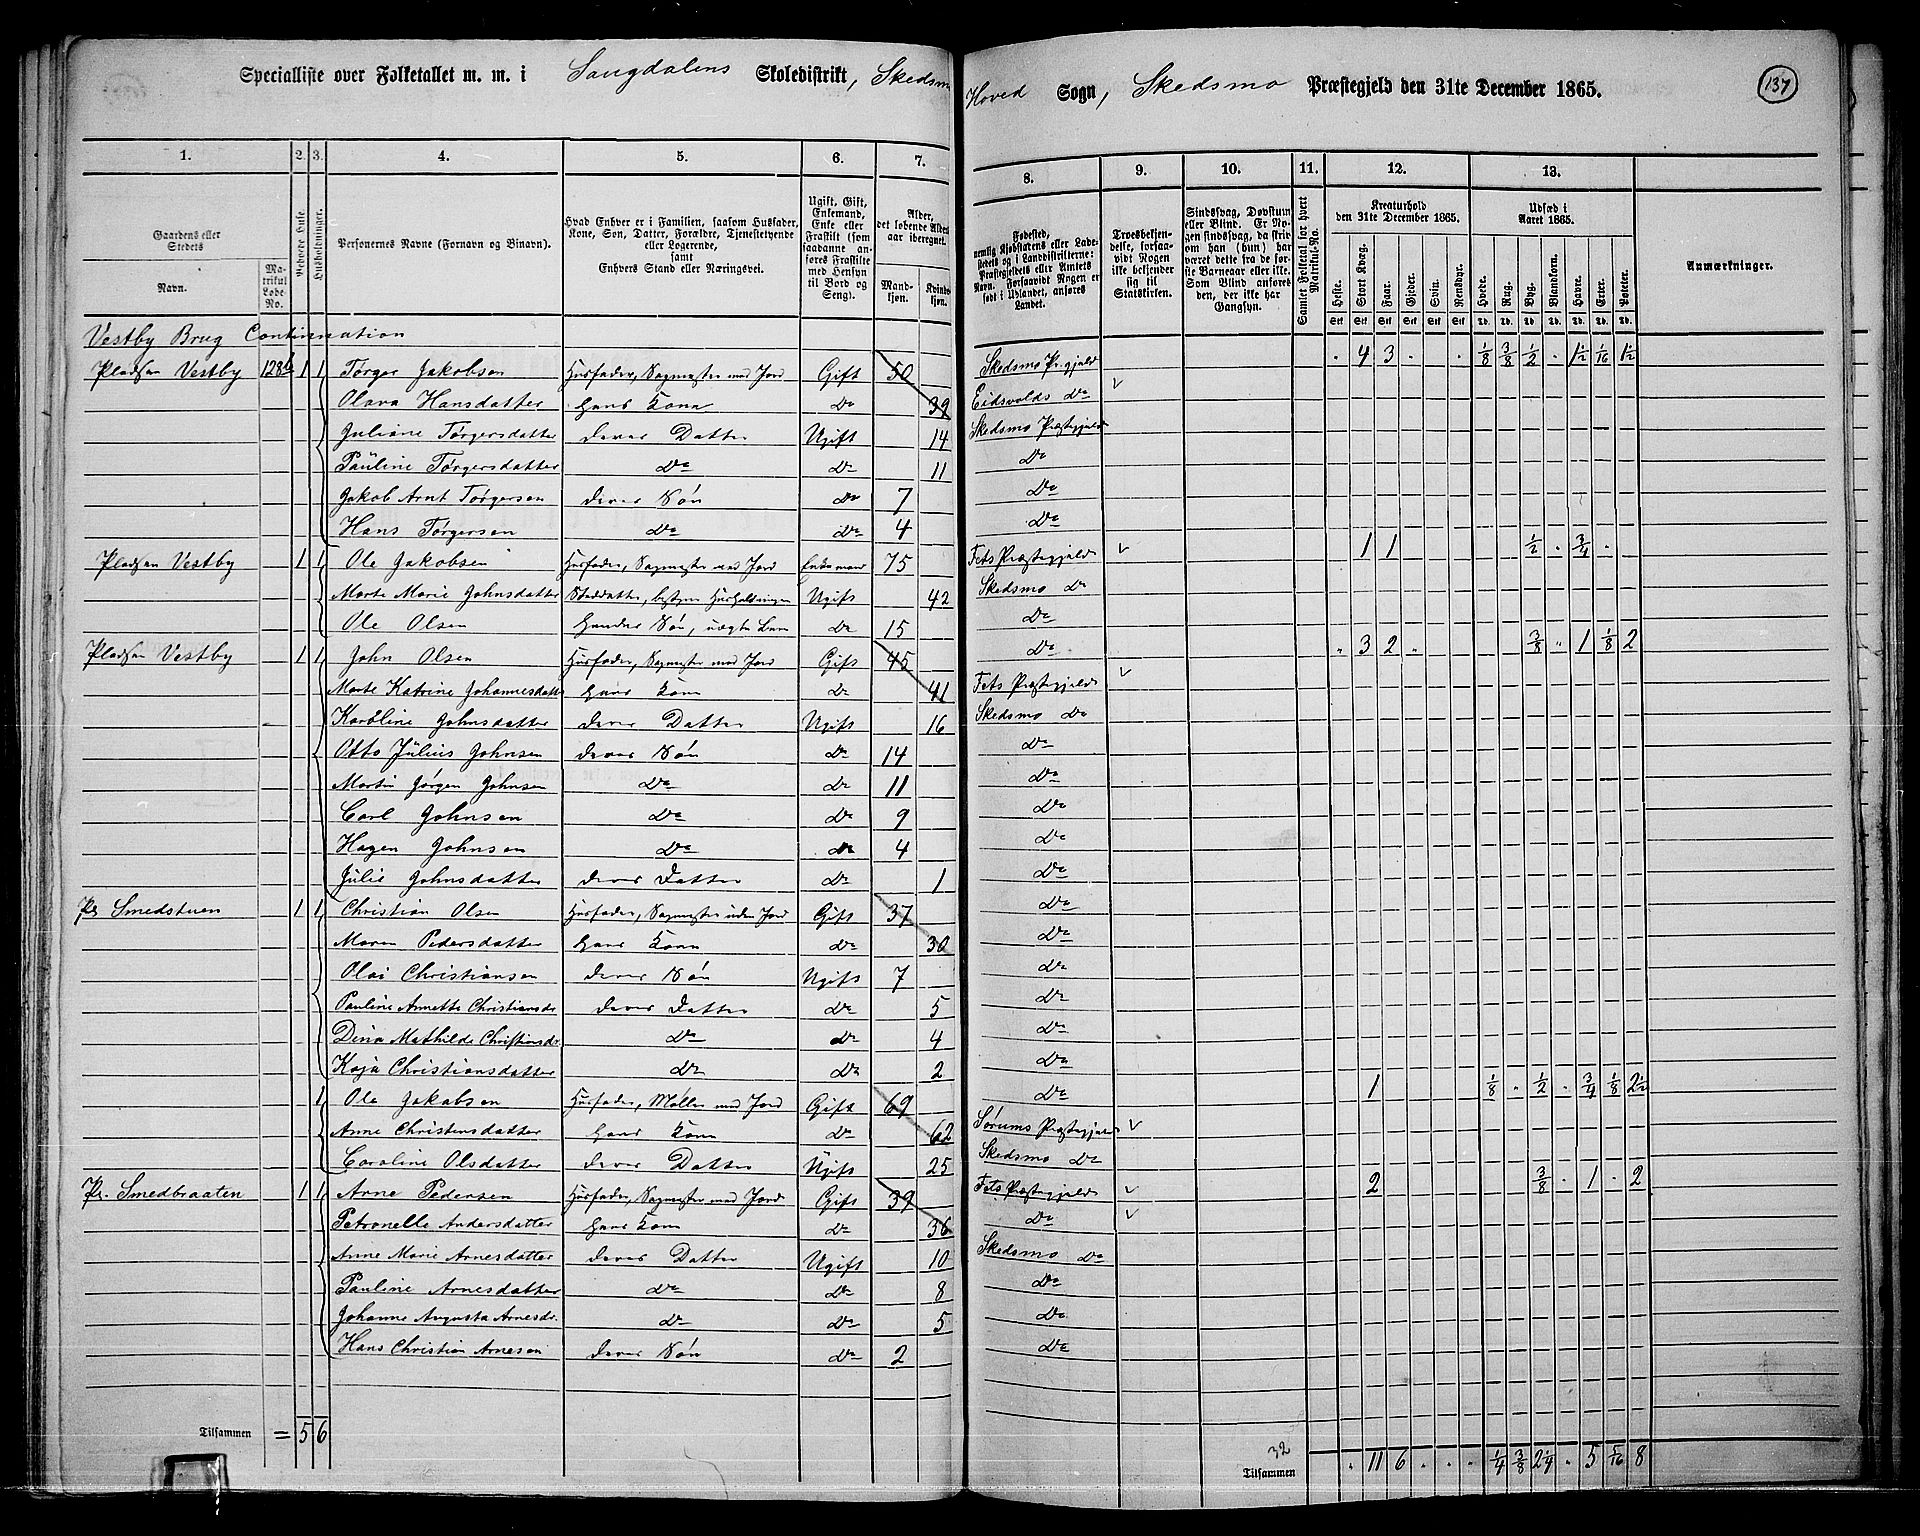 Specialliste over Folketallet m. m. i Saugdalens Skoledistrikt, Skedsmo Hoved Sogn, Skedsmo Præstegjeld den 31te December 1865. 137
1. 2. 3. 4. 5. 6. 7. 8. 9. 10. 11. 12. 13.
Gaardens eller Stedets
Navn. Matrikul Løbe-No.
Beboede Huse.
Husholdninger.
Personernes Navne (Fornavn og Binavn).
Hvad Enhver er i Familien, saasom Husfader, Kone, Søn, Datter, Forældre, Tjenestetyende eller Logerende, samt Enhvers Stand eller Næringsvei.
Ugift, Gift, Enkemand, Enke eller Fraskilt (som saadanne anføres Fraskilte med Hensyn til Bord og Seng).
Alder, det løbende Alders-aar iberegnet.
Mandkjøn. Kvindekjøn.
Fødested, nemlig Kjøbstadens eller Ladestedets og i Landdistrikterne: Præstegjeldets eller Amtets Navn. Forsaavidt Nogen er født i Udlandet, anføres Landet.
Troesbekjendelse, forsaavidt Nogen ikke bekjender sig til Statskirken.
Sindssvag, Døvstum eller Blind. Er Nogen sindssvag, da skrives om han (hun) har været dette fra de første Barneaar eller ikke. Som Blind anføres den, der ikke har Gangsyn.
Samlet Folketal for hvert Matrikul-No.
Kreaturhold den 31te December 1865.
Heste. Stort Kvæg. Faar. Gjeder. Svin. Rensdyr.
Udsæd i Aaret 1865.
Hvede. Rug. Byg. Blandkorn. Havre. Erter. Poteter.
Anmærkninger.
Vestby Brug Continuation
Pladsen Vestby 128b 1 1 Tørger Jakobsen Husfader, Sagmester med Jord Gift 50 Skedsmo Prgjeld 4 3 1/8 3/8 1/2 1 1/2 1/16 1 1/2
Olava Hansdatter Hans Kone Do 39 Eidsvolds Do
Juliane Tørgersdatter deres Datter Ugift 14 Skedsmo Præstegjeld
Pauline Tørgersdatter Do Do 11 Do
Jakob Arnt Tørgersen deres Søn Do 7 Do
Hans Tørgersen Do Do 4 Do
Pladsen Vestby 1 1 Ole Jakobsen Husfader, Sagmester med Jord Enkemand 75 Fets Præstegjeld 1 1 1/2 3/4
Marte Marie Johnsdatter Steddatter, bestyrer Husholdningen Ugift 42 Skedsmo Do
Ole Olsen Hendes Søn, uægte Barn Do 15 Do
Pladsen Vestby 1 1 John Olsen Husfader, Sagmester med Jord Gift 45 Do 3 2 3/8 1 1/8 2
Marte Katrine Johannesdatter Hans Kone Do 41 Fets Præstegjeld
Karoline Johnsdatter deres Datter Ugift 16 Skedsmo Do
Otto Julius Johnsen deres Søn Do 14 Do
Martin Jørgen Johnsen Do Do 11 Do
Carl Johnsen Do Do 9 Do
Hagen Johnsen Do Do 4 Do
Julie Johnsdatter deres Datter Do 1 Do
Pl. Smedstuen 1 1 Christian Olsen Husfader, Sagmester uden Jord Gift 37 Do
Maren Pedersdatter Hans Kone Do 30 Do
Olai Christiansen deres Søn Ugift 7 Do
Pauline Annette Christiansdr deres Datter Do 5 Do
Dina Mathilde Christiansdr Do Do 4 Do
Kaja Christiansdatter Do Do 2 Do
1 Ole Jakobsen Husfader, Møller med Jord Gift 69 Do 1 1/8 1/2 3/4 1/8 2 1/2
Anne Christensdatter Hans Kone Do 62 Sørums Præstegjeld
Caroline Olsdatter deres Datter Ugift 25 Skedsmo Do
Pl. Smedbraaten 1 1 Arne Pedersen Husfader, Sagmester med Jord Gift 39 Fets Præstegjeld 2 3/8 1 2
Petronelle Andersdatter Hans Kone Do 36 Do
Anne Marie Arnesdatter deres Datter Ugift 10 Skedsmo Do
Pauline Arnesdatter Do Do 8 Do
Johanne Augusta Arnesdr. Do Do 5 Do
Hans Christian Arnesen deres Søn Do 2 Do
Tilsammen = 5 6
32
Tilsammen 11 6 1/4 3/8 2 1/4 5 5/16 8